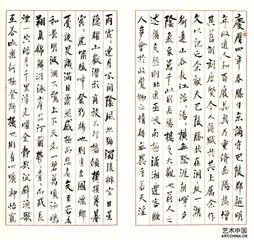 慶曆四年春滕子京謫守巴陵郡越明
年政通人和百廢具興乃重修岳陽樓增
其舊制刻唐賢今人詩賦于其上屬余作
文以記之余觀夫巴陵勝狀在洞庭一湖
銜遠山吞長江浩浩湯湯橫無際涯朝暉夕
陰氣象萬千此則岳陽樓之大觀也前人之
述備矣然則北通巫峽南極瀟湘遷客騷
人多會於此覽物之情得無異乎若夫淫
雨霏霏連月不開陰風怒號濁浪排空日星
隱曜山岳潛形商旅不行檣傾楫摧薄暮
冥冥虎嘯猿啼登斯樓也則有去國懷鄉
憂讒畏譏滿目蕭然感極而悲者矣至若春
和景明波瀾不驚上下天光一碧萬頃沙鷗
翔集錦鱗游泳岸芷汀蘭郁郁青青而或長
煙一空皓月千里浮光躍金靜影沉璧漁歌
互答此樂何極登斯樓也則有心曠神怡寵
艺术中国
ARTCHINA.CN